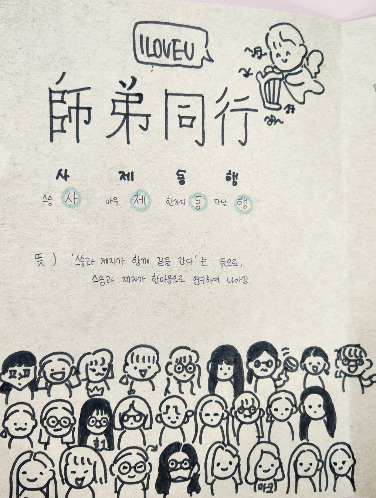 I LOVE U
師弟同行
사 제 동 행
스승 사 아우 제 한가지 동 다닐 행
뜻) '스승과 제자가 함께 길을 간다'는 뜻으로,
스승과 제자가 한마음으로 연구하여 나아감